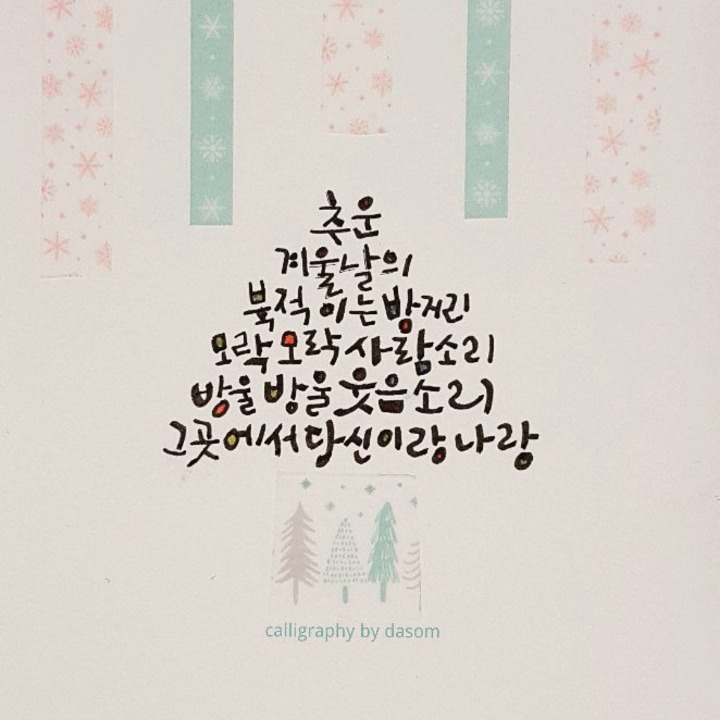 추운
겨울날의
북적이는 밤거리
오락오락 사람소리
방울방울 웃음소리
그곳에서 당신이랑 나랑
calligraphy by dasom